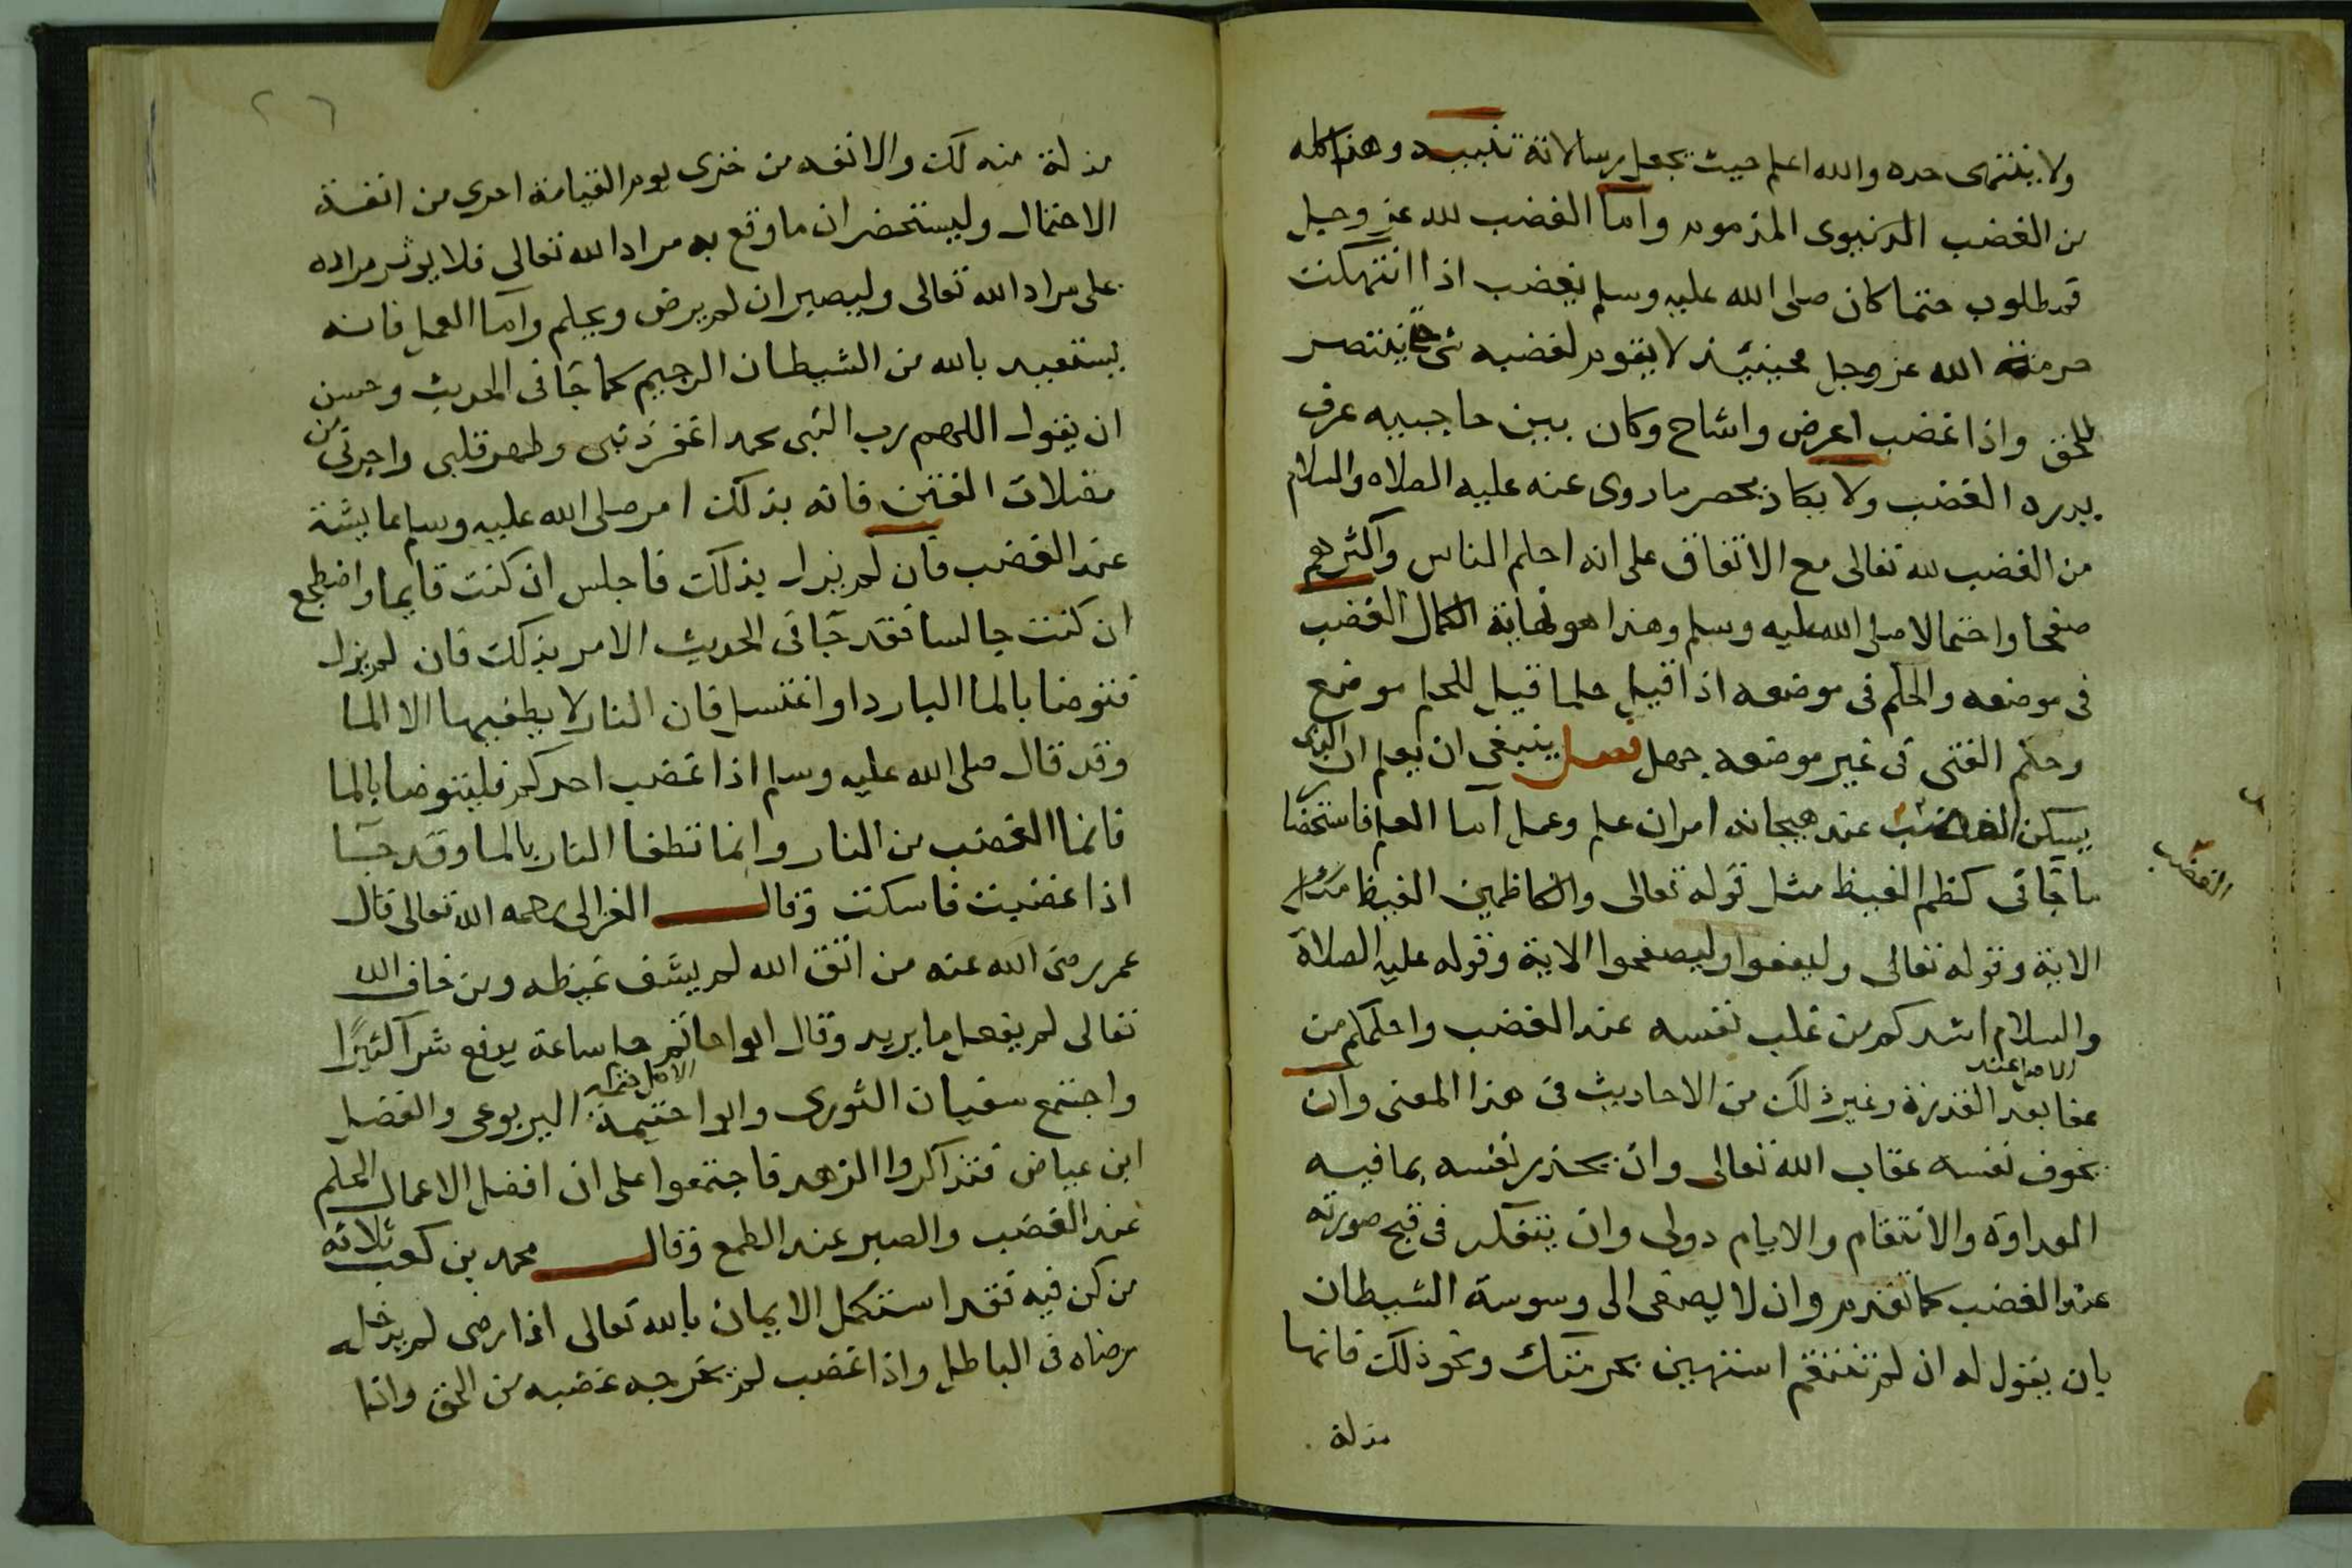 ولا ينتهى حده والله اعلم حيث يجعل رسالاته تنبيه وهذا كله
من الغضب الدنيوى المذموم وأما الغضب لله عز وجل
فمطلوب حتما كان صلى الله عليه وسلم يغضب اذا انتهكت
حرمة الله عز وجل فحينئذ لا يقوم لغضبه شى حتى ينتصر
للحق واذا غضب اعرض واشاح وكان بين حاجبيه عرق
يدره الغضب ولا يكاد يحصر ما روى عنه عليه الصلاه والسلام
من الغضب لله تعالى مع الاتفاق على انه احلم الناس واكثرهم
صفحا واحتمالا صلى الله عليه وسلم وهذا هو نهاية الكمال الغضب
فى موضعه والحلم فى موضعه اذا قيل حلما قيل للحلم موضع
وحلم الفتى فى غير موضعه جهل فصل ينبغى ان يعلم ان الذى
يسكن الغضب عند هيجانه امران علم وعمل اما العلم فاستحضا
ر
الغضب
ما جآ فى كظم الغيظ مثل قوله تعالى والكاظمين الغيظ
الاية وقوله تعالى وليعفوا وليصفحوا الاية وقوله عليه الصلاة
والسلام اشدكم من غلب نفسه عند الغضب واحلمكم من
عفا بعد القدرة وغير ذلك من الاحاديث فى هذا المعنى وان
الاصل عند
يخوف نفسه عقاب الله تعالى وان يحذر نفسه بما فيه
العداوة والانتقام والايام دولى وان يتفكر فى قبح صورته
عند الغضب كما تقدم وان لا يصغى الى وسوسة الشيطان
بان يقول له ان لم تنتقم استهين بحرمتك ونحو ذلك فانها
مذلة
مذلة منه لك والانفه من خزى يوم القيامة احرى من انفة
الاحتمال وليستحضر ان ما وقع به مراد الله تعالى فلا يوثر مراده
على مراد الله تعالى وليصبر ان لم يرض ويحلم واما العمل فانه
يستعيد بالله من الشيطان الرجيم كما جآ فى الحديث وحسن
ان يقول اللهم رب النبى محمد اغفر ذنبى وطهر قلبى واجرنى من
مضلات الفتن فانه بذلك امر صلى الله عليه وسلم عايشة
عند الغضب فان لم يزل بذلك فاجلس ان كنت قايما واضطجع
ان كنت جالسا فقد جآ فى الحديث الامر بذلك فان لم يزل
فتوضا بالما البارد او اغتسل فان النار لا يطفيها الا الما
وقد قال صلى الله عليه وسلم اذا غضب احدكم فليتوضا بالما
فانما الغضب من النار وانما تطفا النار بالما وقد جآ
اذا غضبت فاسكت وقال الغزالى رحمه الله تعالى قال
عمر رضى الله عنه من اتق الله لم يشف غيظه ومن خاف الله
تعالى لم يفعل ما يريد وقال ابوا حاتم حلم ساعة يدفع شرا كثيرا
واجتمع سفيان الثورى وابوا خثيمة اليربوعى والفضيل
ابن عياض فتذاكروا الزهد فاجتمعوا على ان افضل الاعمال الحلم
عند الغضب والصبر عند الطمع وقال محمد بن كعب ثلاثه
من كن فيه فقد استكمل الايمان بالله تعالى اذا رضى لم يدخله
رضاه فى الباطل واذا غضب لم يخرجه غضبه من الحق واذا